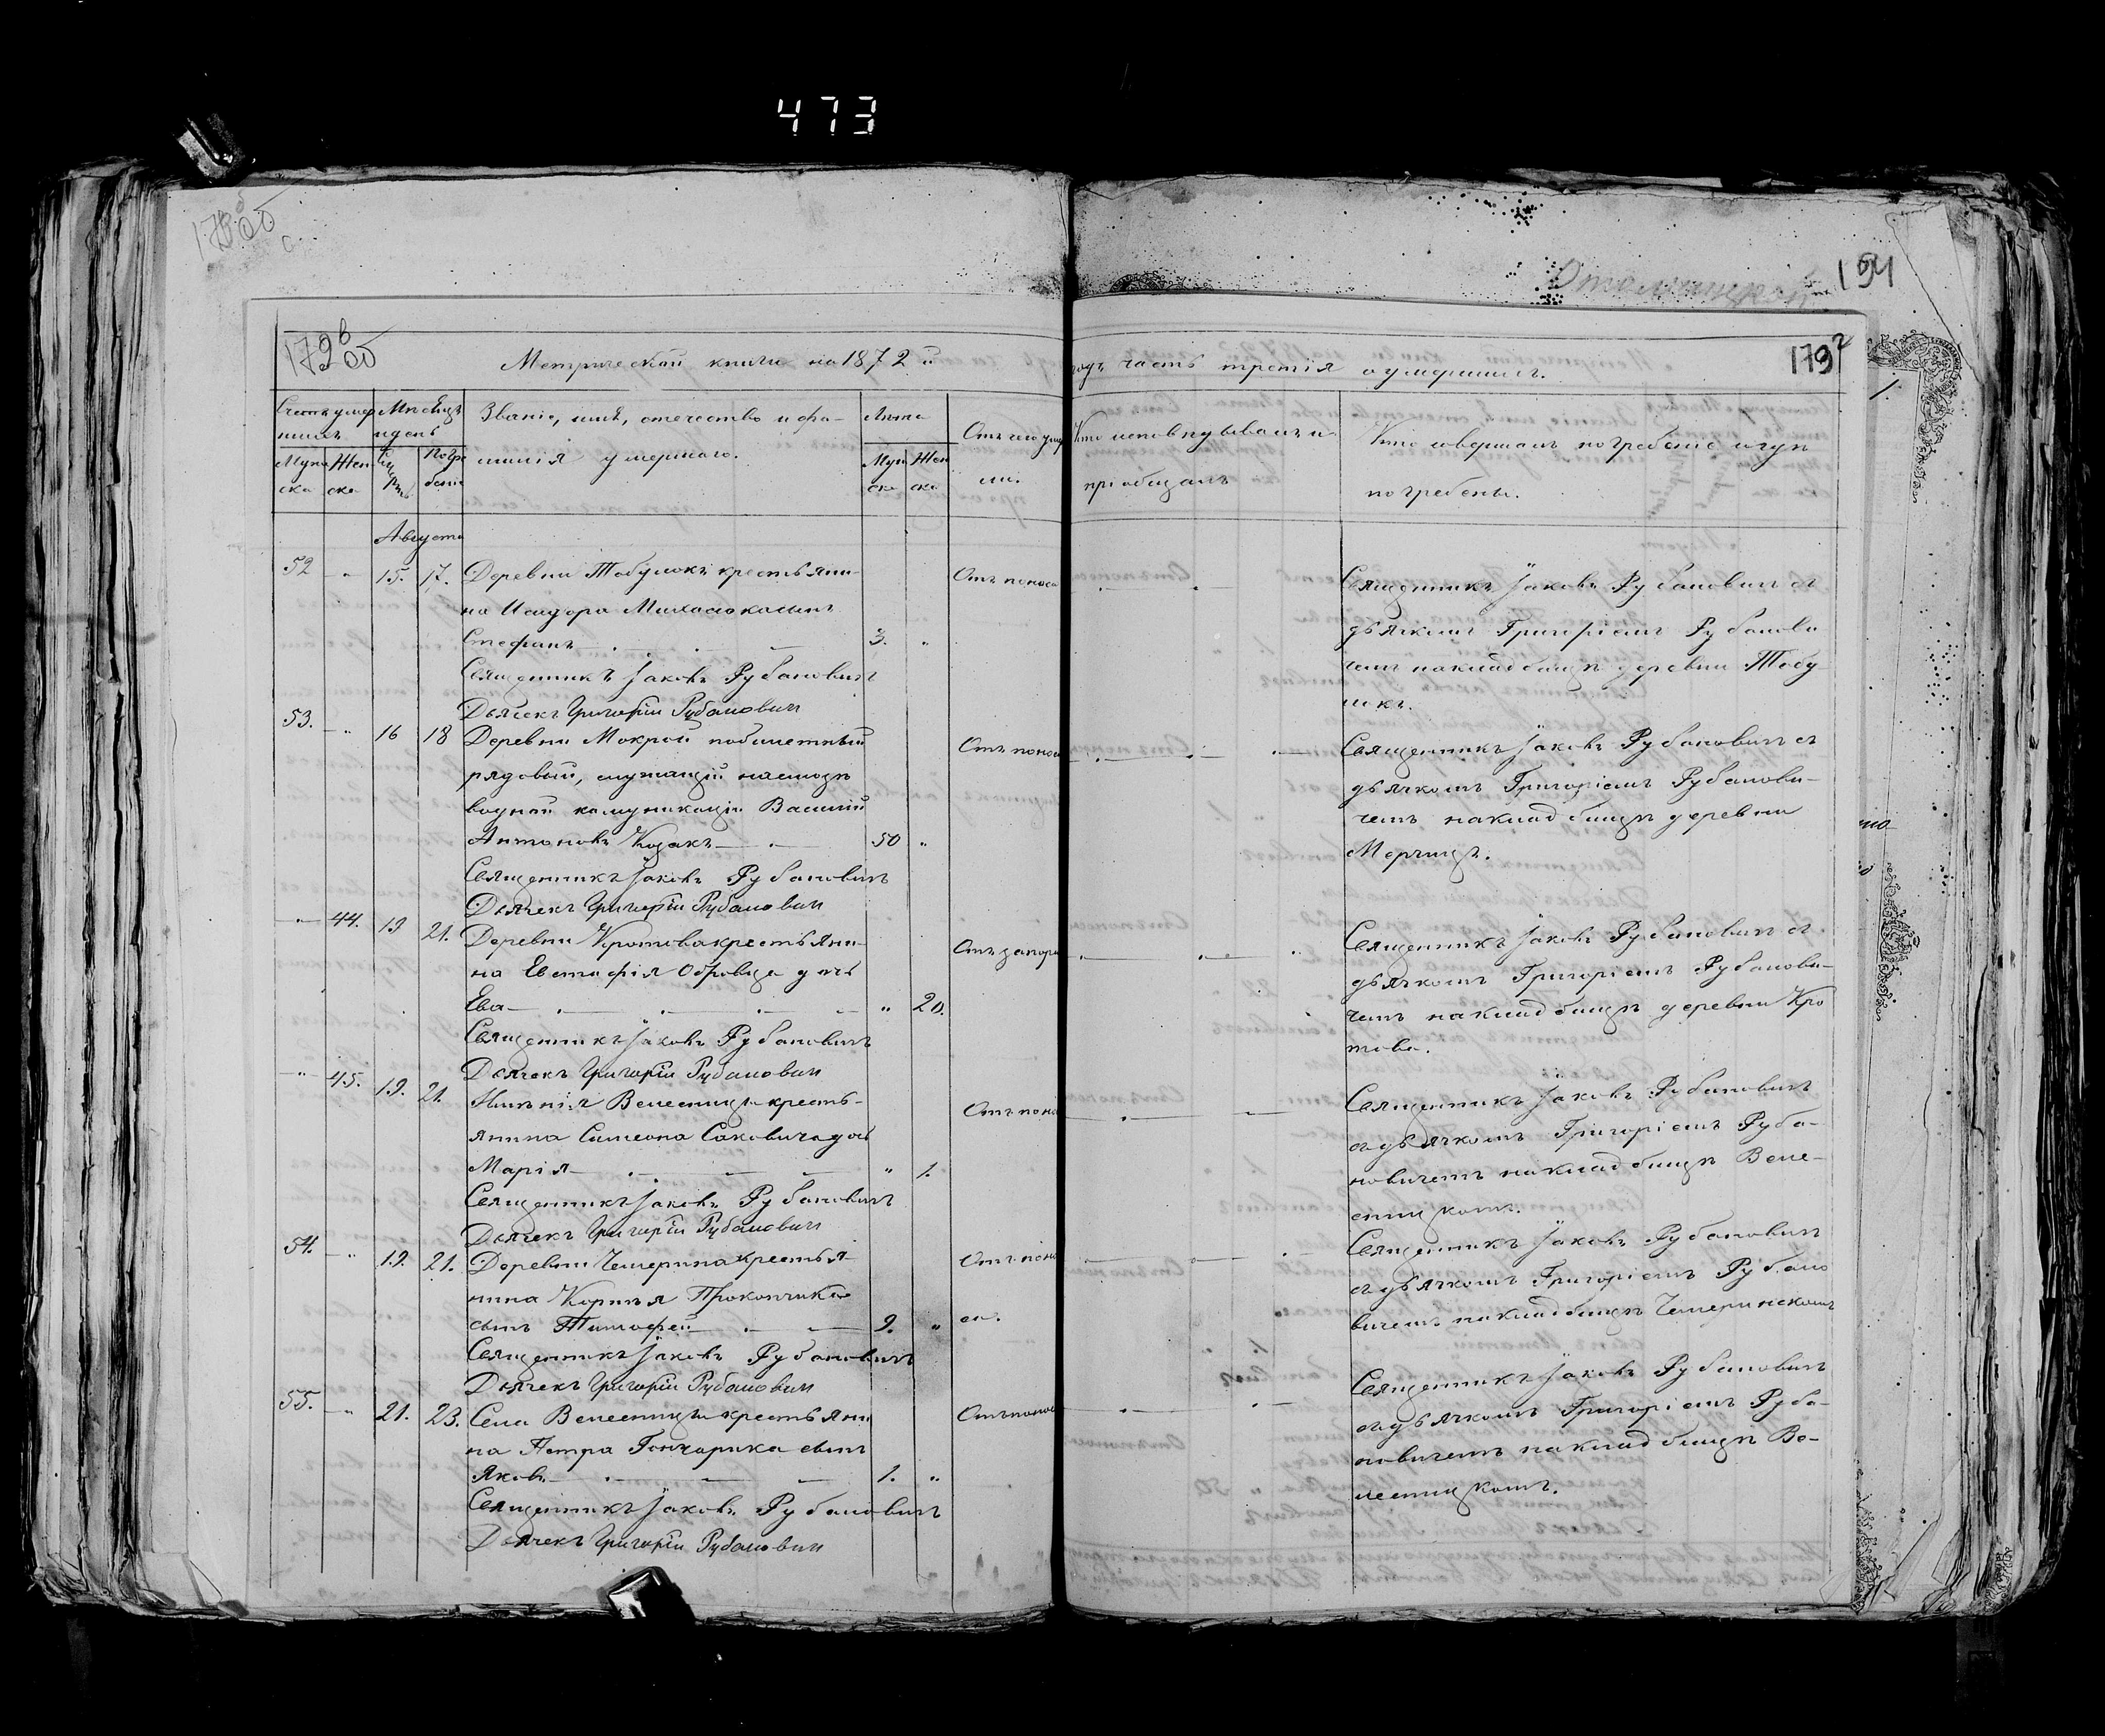 473
194
179
Метрической книги на 1872 й
годъ часть третія о умершихъ.
Счетъ умер
шихъ
Мѣсяцъ
и день
Званіе, имя, отечество и фа-
милія умершаго.
Лѣта
Муж
ска
Жен
ска
Погре
бенія
Муж
ска
Жен
ска
Отъ чего умер
ли.
Кто исповѣдывалъ и
пріобщалъ
Кто совершалъ погребеніе и гдѣ
погребены.
Августа
52 15. 17. Деревни Тобулокъ крестьяни-
на Исидора сынъ
Стефанъ 3.
Отъ поноса
Священникъ Іаковъ Рубановичъ
Дьячекъ Григорій Рубанович
Священникъ Іаковъ Рубановичъ съ
дьячкомъ Григоріемъ Рубанови
чемъ на кладбищѣ деревни Тобу
локъ.
53. 16 18 Деревни Мокрой побилетный
рядовый, служащій
водной комуникаціи Василій
Антоновъ Козакъ 50
Отъ поноса
Священникъ Іаковъ Рубановичъ
Дьячекъ Григорій Рубанович
Священникъ Іаковъ Рубановичъ съ
дьячкомъ Григоріемъ Рубанови-
чемъ на кладбищѣ деревни
44. 19 21. Деревни Кротова крестьяни-
на Евстафія дочь
Ева 20.
Отъ запора
Священникъ Іаковъ Рубановичъ
Дьячекъ Григорій Рубанович
Священникъ Іаковъ Рубановичъ съ
дьячкомъ Григоріемъ Рубанови-
чемъ на кладбищѣ деревни Кро
това.
45. 19. 21. Имѣнія Велесницы кресть-
янина Симеона Саковича дочь
Марія 1.
Отъ поно
Священникъ Іаковъ Рубановичъ
Дьячекъ Григорій Рубанович
Священникъ Іаковъ Рубановичъ
съ дьячкомъ Григоріемъ Руба-
новичемъ на кладбищѣ Веле-
сницкомъ.
54. 19. 21. Деревни Чемерина крестья
нина Корнія Прокопчика
сынъ Тимофей 9.
Отъ поно
са.
Священникъ Іаковъ Рубановичъ
Дьячекъ Григорій Рубанович
Священникъ Іаковъ Рубановичъ
съ дьячкомъ Григоріемъ Рубано
вичемъ на кладбищѣ Чемеринскомъ
55. 21. 23. Села Велесницы крестьяни
на Петра Гончарика сынъ
Яковъ 1.
Отъ понос
Священникъ Іаковъ Рубановичъ
Дьячекъ Григорій Рубанович
Священникъ Іаковъ Рубановичъ
съ дьячкомъ Григоріемъ Руба-
новичемъ на кладбищѣ Ве-
лесницкомъ.